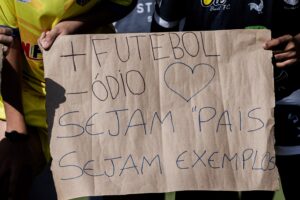 + FUTEBOL
- ÓDIO ♡
SEJAM "PAIS
SEJAM EXEMPLOS